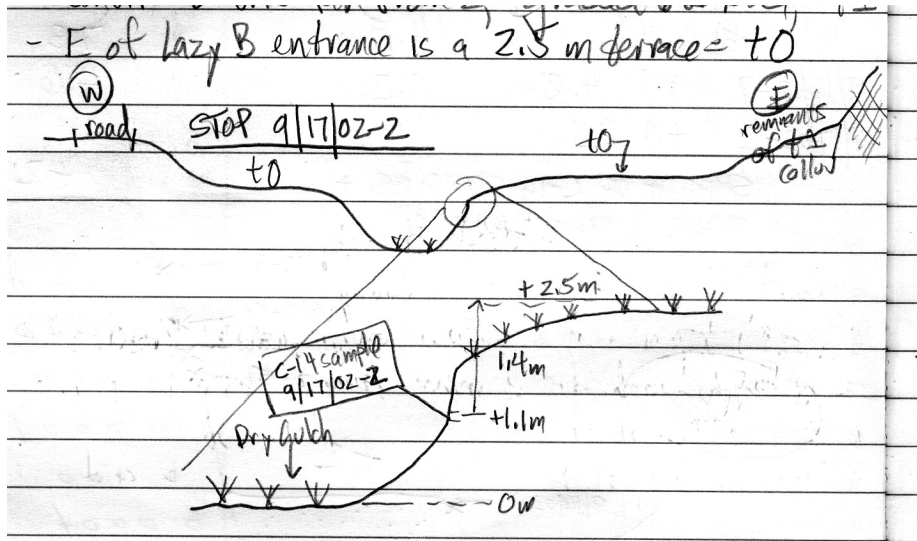 - E of Lazy B entrance is a 2.5 m terrace = t0
W
E
road
STOP 9/17/02-2
t0
t0
remnants
of t1
colluv
+2.5m
1.4m
C-14 sample
9/17/02-2
+1.1m
Dry Gulch
0m